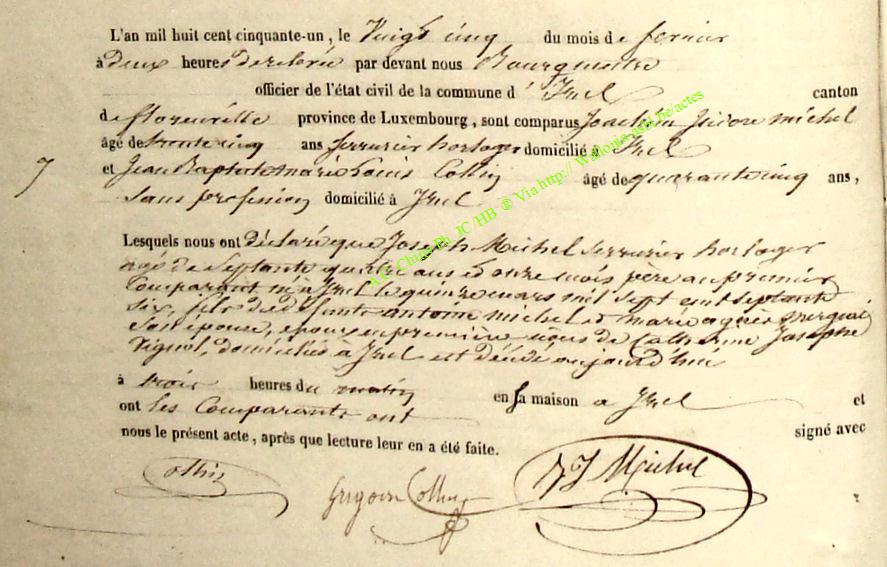 L'an mil huit cent cinquante-un, le Vingt cinq du mois de fevrier
à deux heures de relevée par devant nous Bourgmestre
officier de l'état civil de la commune d' Izel canton
de florenville province de Luxembourg, sont comparus Joachim Isidore michel
âgé de trente cinq ans Serrurier horloger domicilié à Izel
7 et Jean Baptiste marie Louis Collin âgé de quarante cinq ans,
Sans profession domicilié à Izel
Lesquels nous ont déclaré que Joseph Michel Serrurier horloger
agé de Septante quatre ans et onze mois pere au premier
Comparant né à Izel le quinze mars mil Sept cent Septante
Six, fils de defunts antoine michel et marie agnès
Son épouse, epoux en première noces de Catherine Josephe
Pignol, domiciliés à Izel est décédé aujourd'hui
à trois heures du matin en sa maison a Izel et
ont les Comparants ont signé avec
nous le présent acte, après que lecture leur en a été faite.
Collin
Grégoire Collin
J J Michel
JC / HB © Via http:// Wallonia.asbl.be/actes